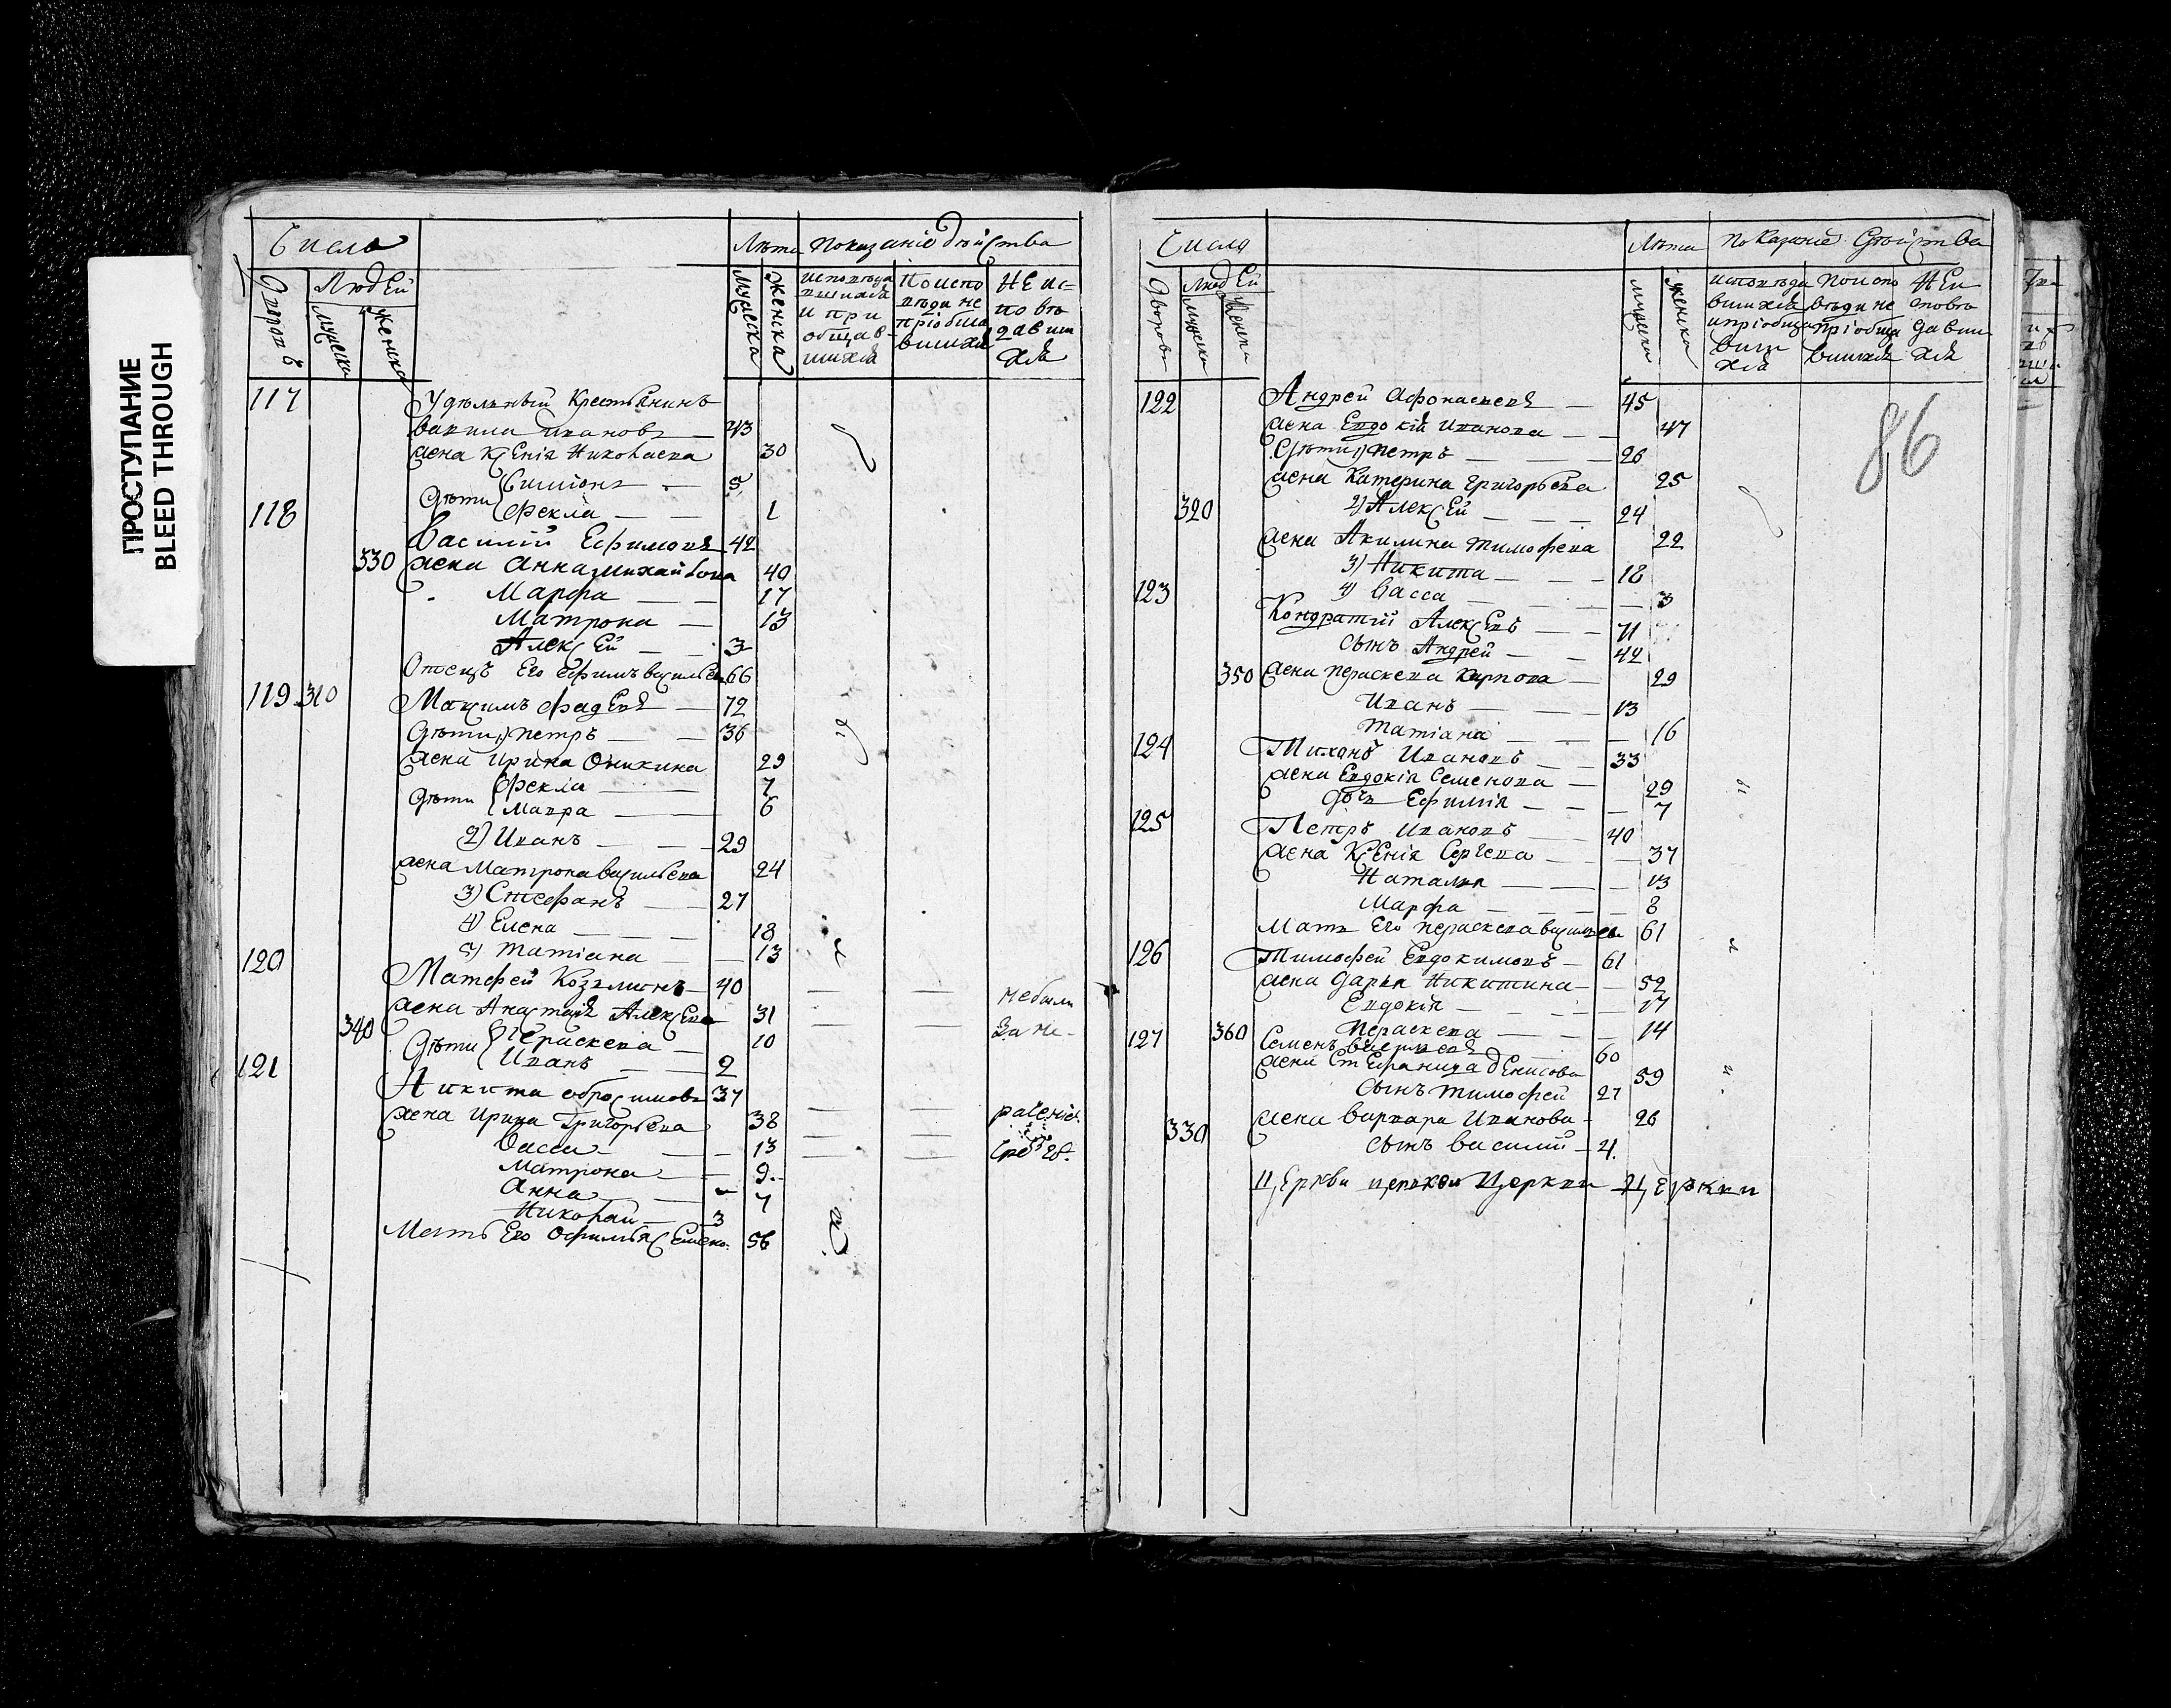 ПРОСТУПАНИЕ
BLEED THROUGH
Число Лѣта Показаніе дѣйства
Дворовъ Людей Мужеска Женска
Мужеска Женска
исповѣда
вшихся
и при
общав-
шихся
по испо
вѣди не
пріобща
вшихся
не ис-
повѣ
давши
хся
117 Удѣльный Крестьянинъ
Вавила Ивановъ — 43
жена Ксенія Николаева 30
Дѣти Симіонъ — 5
Фекла — — 1
118 Василій Ефимовъ 42
330 жена Анна Михайлова 40
Марфа — — 17
Матрона — 13
Алексей — 3
Отецъ Его Ефимъ Василье 66
119 310 Максимъ Фадеевъ — 72
Дѣти 1) Петръ — — 36
жена Ирина Оникина 29
Дѣти Фекла — — 7
Мавра — — 6
2) Иванъ — — 29
жена Матрона Васильева 24
3) Стефанъ — — 27
4) Елена — — — 18
5) Татіана — — 13
120 Матфей Козминъ — 40 — — не были
жена Анастасія Алексеева 31 — — за не-
340 Дѣти Пераскева — 10
Иванъ — — 2
121 Никита 37 — — раченіем
жена Ирина Григорьева 38 — —
Васса — — 13 — —
Матрона — 9
Анна — — 7
Николай — 3
Мать Его Офимья Семено: 56
Число Лѣта Показаніе Дѣйства
Дворовъ Людей Мужеска Женска
Мужеска Женска
исповѣда
вшихся
и пріобща
вши
хся
по испо
вѣди не
пріобща
вшихся
не ис
повѣ
давши
хся
86
122 Андрей Афонасьевъ — 45
жена Евдокія Иванова — — 47
Дѣти 1) Петръ — — — 26
жена Катерина Григорьева 25
320 2) Алексей — — — 24
жена Акилина Тимофева 22
3) Никита — — — 18
4) Васса — — — 3
123 Кондратій Алексевъ — — 71
сынъ Андрей — — 42
350 жена Пераскева Карпова — 29
Иванъ — — — 13
Татіана — — — 16
124 Тихонъ Ивановъ — — 33
жена Евдокія Семенова — 29
дочь Ефимія — — — 7
125 Петръ Ивановъ — 40
жена Ксенія Сергева — — 37
Наталья — — — 13
Марфа — — — — 8
Мать Его Пераскева Васильев 61
126 Тимофей Евдокимовъ — 61
жена Дарья Никитина — — 52
Евдокія — — — 17
360 Пераскева — — — 14
127 Семенъ 60
жена Стефанида Денисова 59
сынъ Тимофей 27
жена Варвара Иванова — 26
330 сынъ Василий — 4
Церкви церкви Церкви Церкви